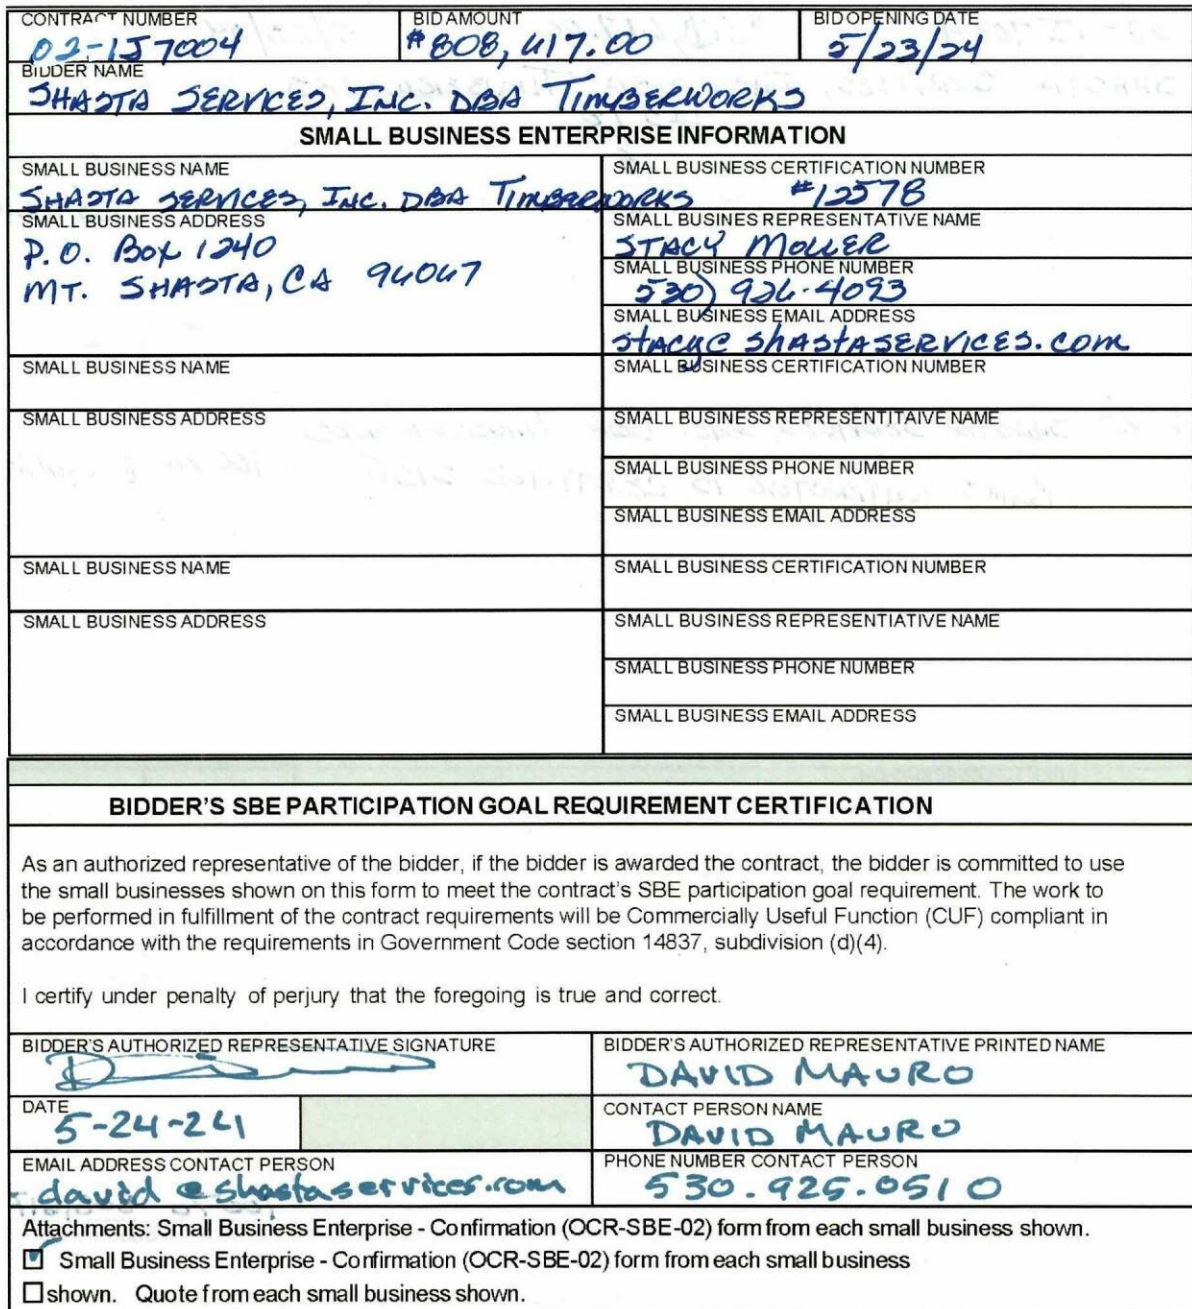 CONTRACT NUMBER BID AMOUNT BID OPENING DATE
02-1J7004 $808,617.00 5/23/24
BIDDER NAME
SHASTA SERVICES, INC. DBA TIMBERWORKS
SMALL BUSINESS ENTERPRISE INFORMATION
SMALL BUSINESS NAME SMALL BUSINESS CERTIFICATION NUMBER
SHASTA SERVICES, INC. DBA TIMBERWORKS #12578
SMALL BUSINESS ADDRESS SMALL BUSINES REPRESENTATIVE NAME
P.O. BOX 1240 STACY MOLLER
MT. SHASTA, CA 96067 SMALL BUSINESS PHONE NUMBER
530) 926-4093
SMALL BUSINESS EMAIL ADDRESS
stacy@shastaservices.com
SMALL BUSINESS NAME SMALL BUSINESS CERTIFICATION NUMBER
SMALL BUSINESS ADDRESS SMALL BUSINESS REPRESENTITAIVE NAME
SMALL BUSINESS PHONE NUMBER
SMALL BUSINESS EMAIL ADDRESS
SMALL BUSINESS NAME SMALL BUSINESS CERTIFICATION NUMBER
SMALL BUSINESS ADDRESS SMALL BUSINESS REPRESENTIATIVE NAME
SMALL BUSINESS PHONE NUMBER
SMALL BUSINESS EMAIL ADDRESS
BIDDER'S SBE PARTICIPATION GOAL REQUIREMENT CERTIFICATION
As an authorized representative of the bidder, if the bidder is awarded the contract, the bidder is committed to use
the small businesses shown on this form to meet the contract's SBE participation goal requirement. The work to
be performed in fulfillment of the contract requirements will be Commercially Useful Function (CUF) compliant in
accordance with the requirements in Government Code section 14837, subdivision (d)(4).
I certify under penalty of perjury that the foregoing is true and correct.
BIDDER'S AUTHORIZED REPRESENTATIVE SIGNATURE BIDDER'S AUTHORIZED REPRESENTATIVE PRINTED NAME
DAVID MAURO
DATE CONTACT PERSON NAME
5-24-24 DAVID MAURO
EMAIL ADDRESS CONTACT PERSON PHONE NUMBER CONTACT PERSON
david@shastaservices.com 530.925.0510
Attachments: Small Business Enterprise - Confirmation (OCR-SBE-02) form from each small business shown.
☑ Small Business Enterprise - Confirmation (OCR-SBE-02) form from each small business
☐ shown. Quote from each small business shown.